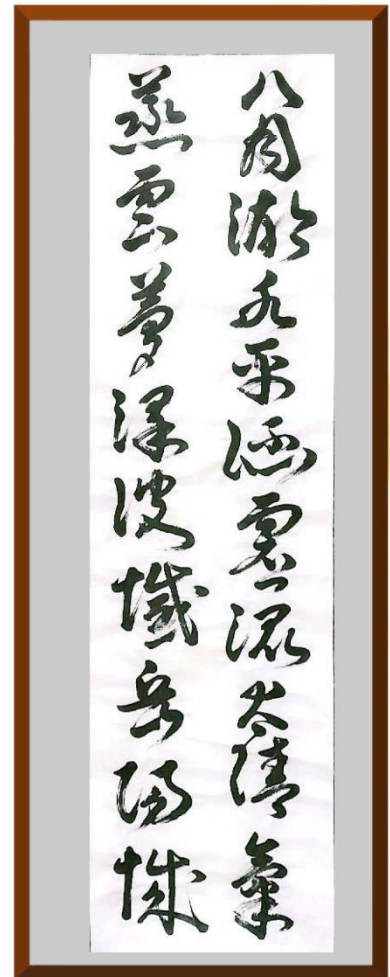 八月湖水平涵虛混太清氣
蒸雲夢澤波撼岳陽城